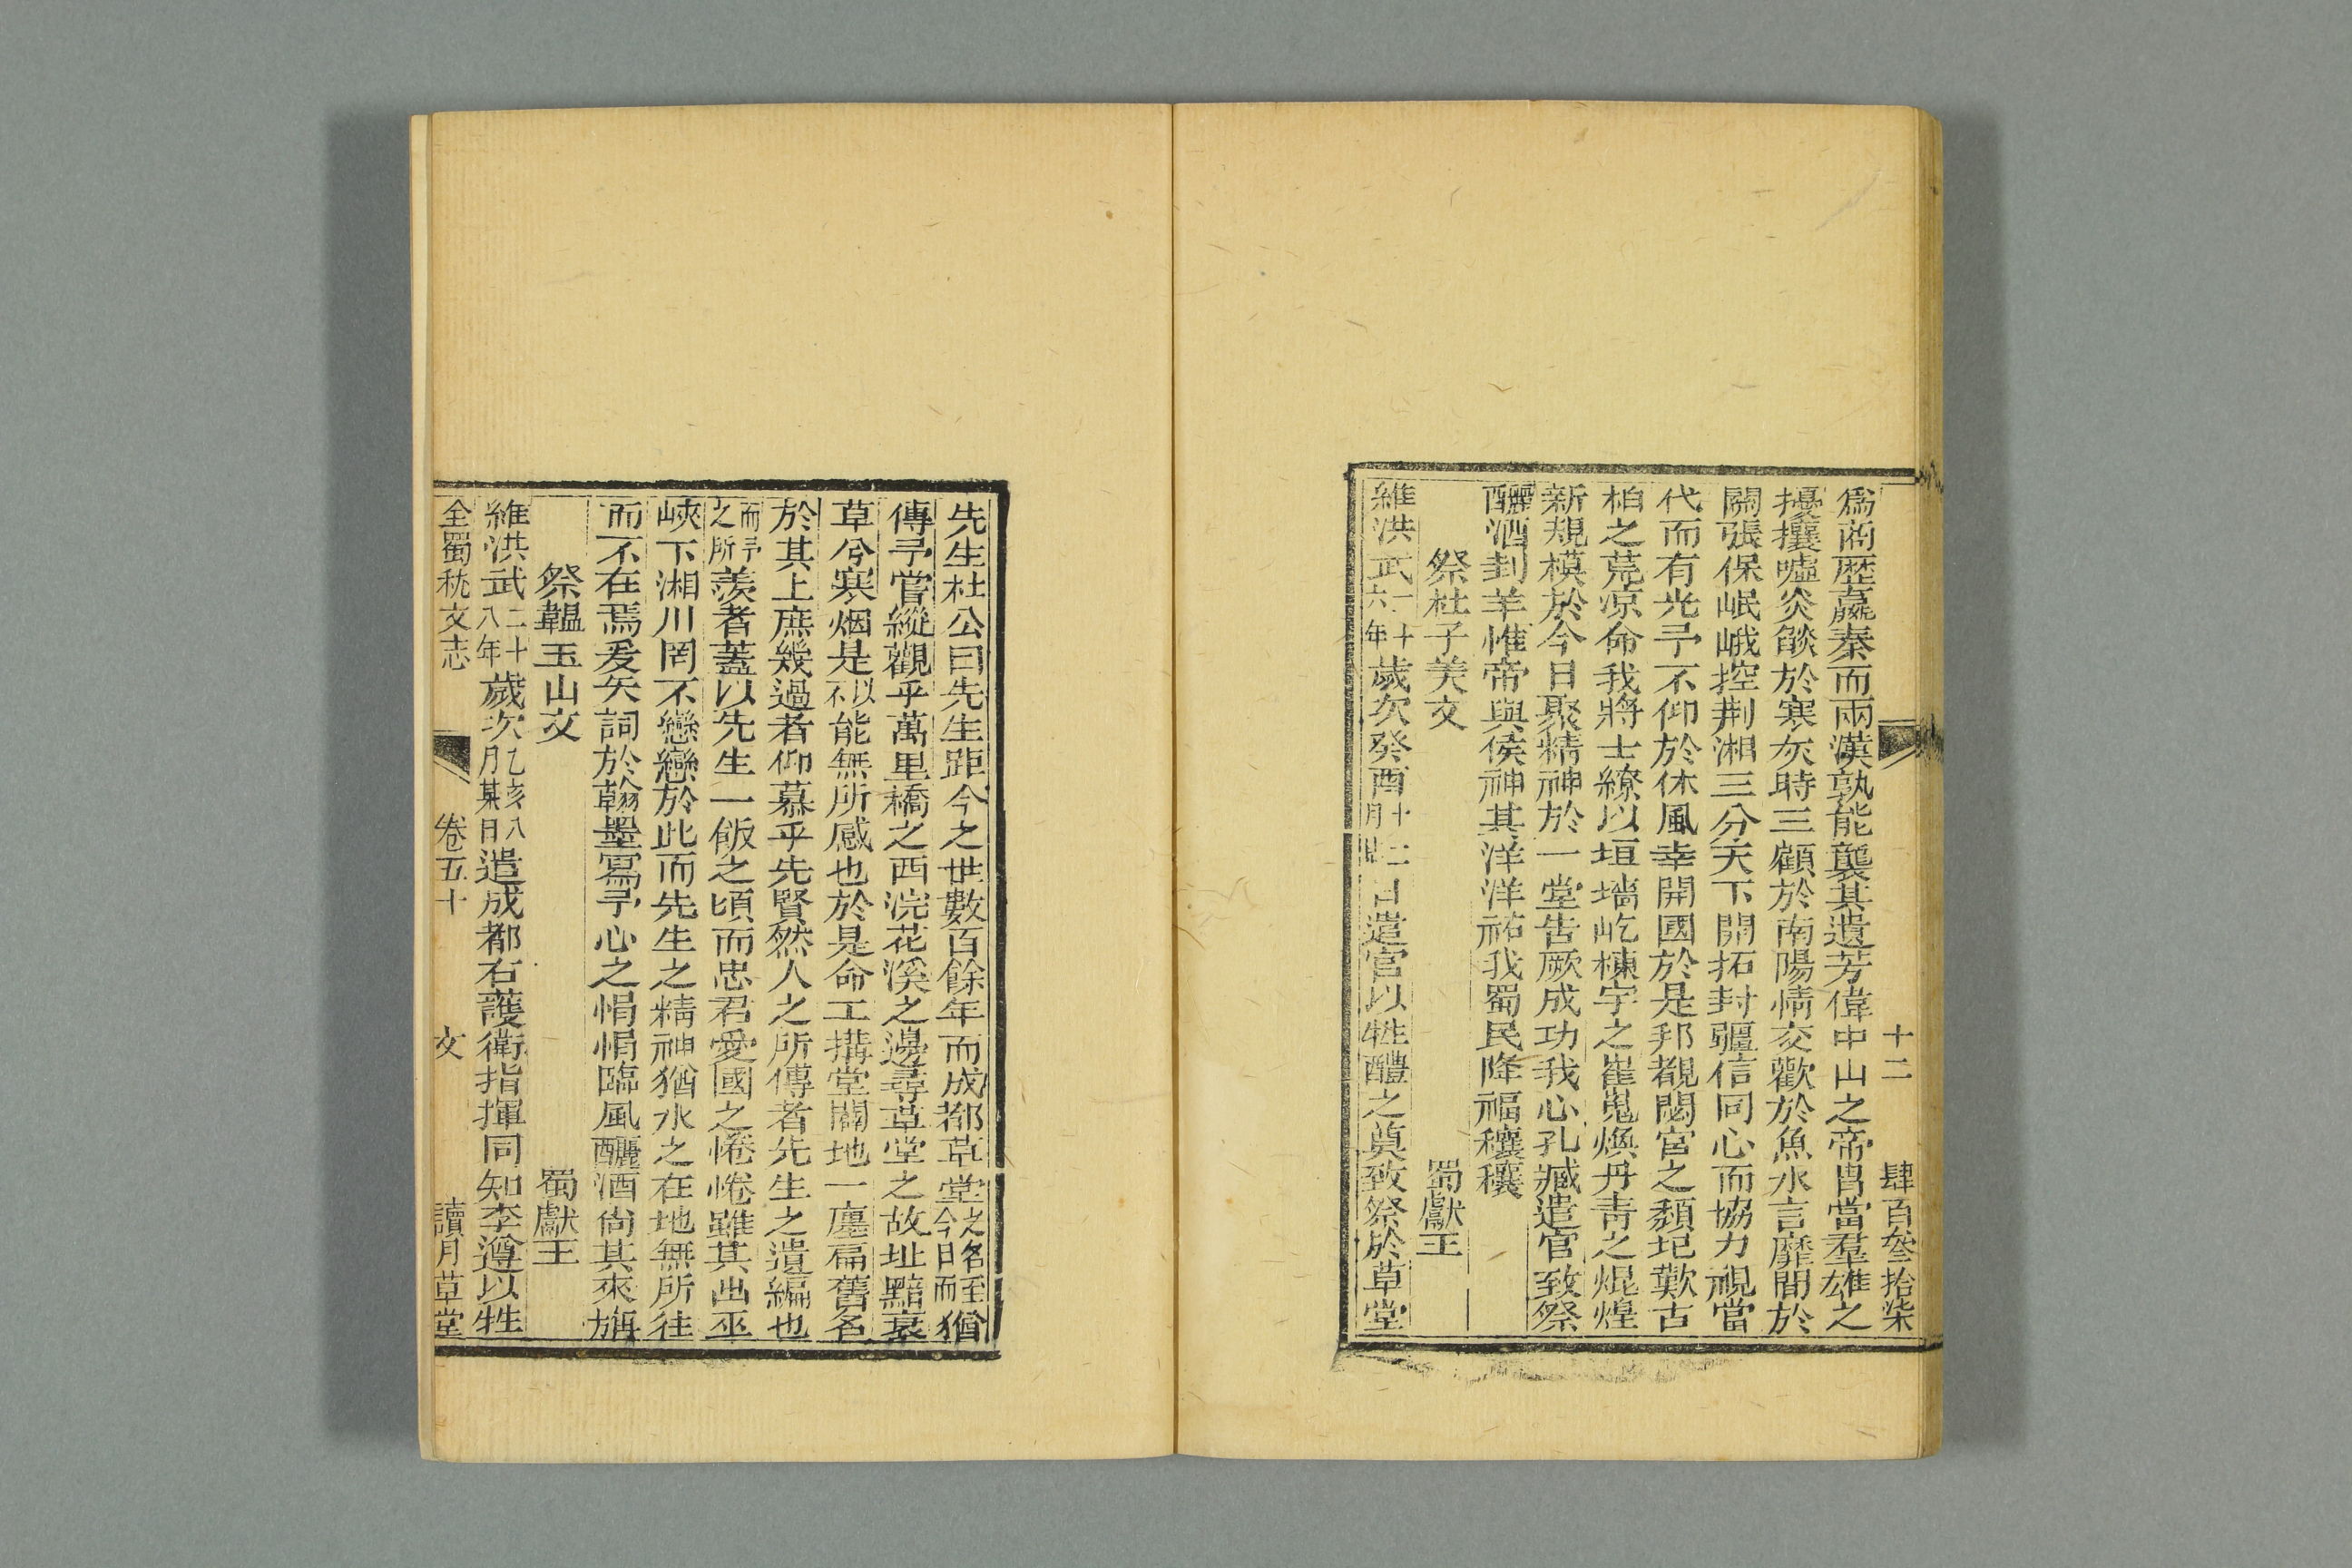 十二 肆百叄拾柒
爲商歷嬴秦而兩漢孰能襲其遺芳偉中山之帝胄當羣雄之
擾攘噓炎燄於寒灰時三顧於南陽情交歡於魚水言靡間於
關張保岷峨控荆湘三分天下開拓封疆信同心而協力視當
代而有光予不仰於休風幸開國於是邦覩閟宮之頽圮歎古
柏之荒凉命我將士繚以垣墻屹棟宇之崔嵬煥丹青之焜煌
新規模於今日聚精神於一堂告厥成功我心孔臧遣官致祭
釃酒封羊惟帝與侯神其洋洋祐我蜀民降福穰穰
祭杜子美文 蜀獻王
維洪武二十六年歲次癸酉十二月 日遣官以牲醴之奠致祭於草堂
先生杜公曰先生距今之世數百餘年而成都草堂之名至今日而猶
傳予嘗縱觀乎萬里橋之西浣花溪之邊尋草堂之故址黯衰
草兮寒烟是以不能無所感也於是命工搆堂闢地一廛扁舊名
於其上庶幾過者仰慕乎先賢然人之所傳者先生之遺編也
而予之所羨者蓋以先生一飯之頃而忠君愛國之惓惓雖其出巫
峽下湘川罔不戀戀於此而先生之精神猶水之在地無所往
而不在焉爰矢詞於翰墨寫予心之悁悁臨風釃酒尙其來旃
祭韞玉山文 蜀獻王
維洪武二十八年歲次乙亥八月某日遣成都右護衛指揮同知李遵以牲
全蜀秇文志 卷五十 文 讀月草堂